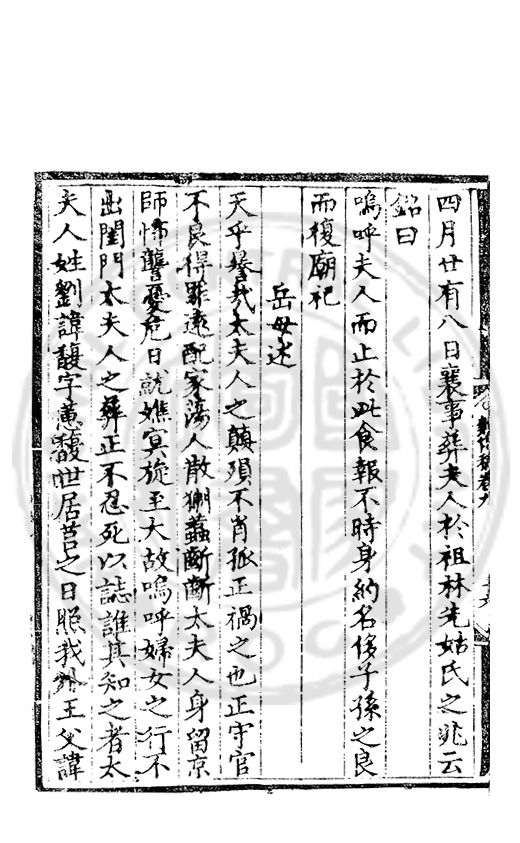 四月廿有八日襄事葬夫人於祖林先姑氏之兆云
銘曰
嗚呼夫人而止於此食報不時身約名侈子孫之良
而復廟祀
岳母述
天乎慘哉太夫人之顛殞不肖孤正禍之也正守官
不良得罪遠配家蕩人散猘蠚斷斷太夫人身留京
師怖讋憂危日就憔冥旋至大故嗚呼婦女之行不
出閨門太夫人之葬正不忍死以誌誰其知之者太
夫人姓劉諱馥字蕙馥世居莒之日照我外王父諱